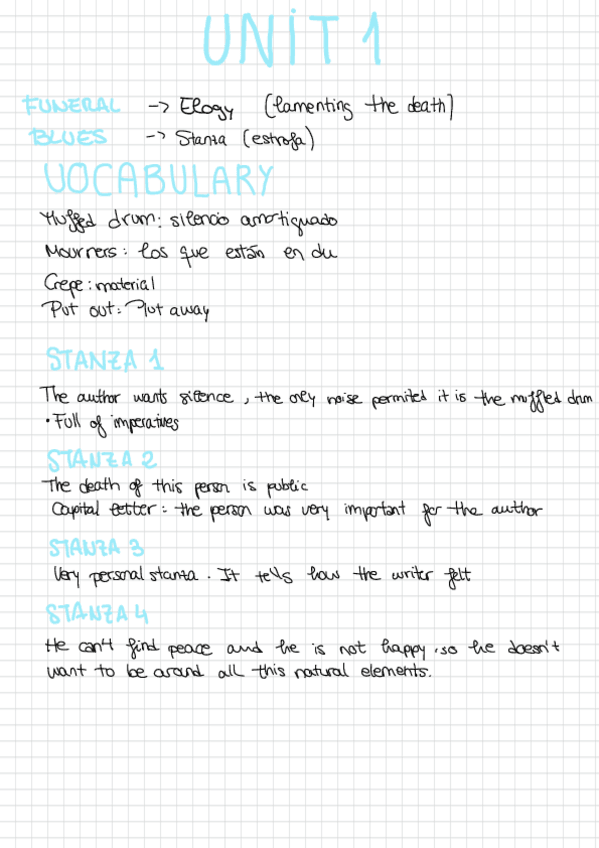 UNIT 1
FUNERAL -> Elogy (lamenting the death)
BLUES -> Stanza (estrofa)
VOCABULARY
Muffed drum: silencio amortiguado
Mourners: los que están en du
Crepe: material
Put out: Put away
STANZA 1
The author wants silence, the only noise permited it is the muffled drum
• Full of imperatives
STANZA 2
The death of this person is public
Capital letter: the person was very important for the author
STANZA 3
Very personal stanza. It tells how the writer felt
STANZA 4
He can't find peace and he is not happy, so he doesn't
want to be around all this natural elements.